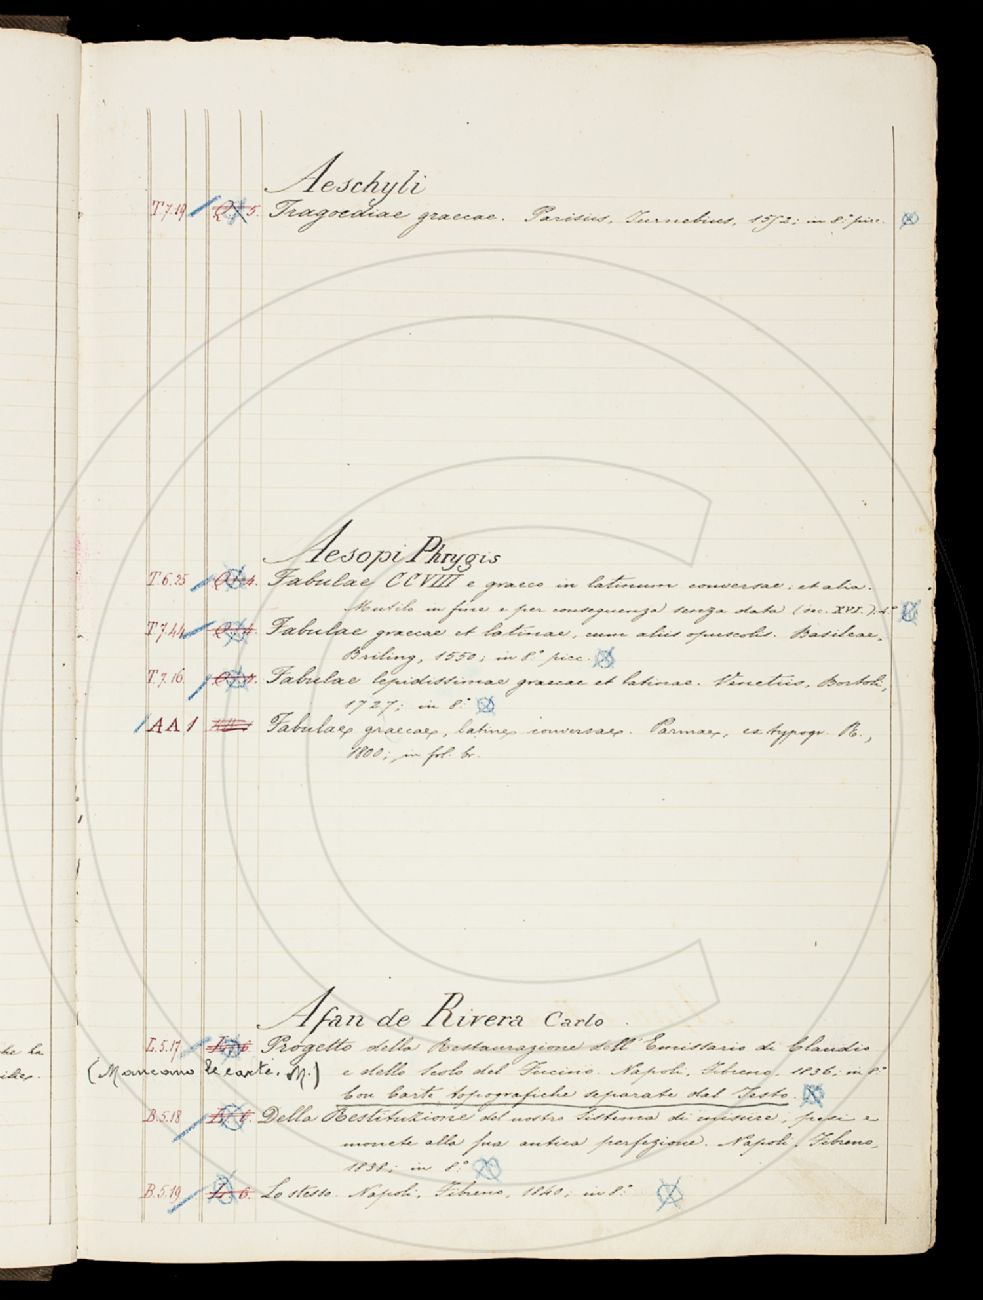 Aeschyli
T.7.19 5. Tragoediae graecae. Parisiis, Turnebus, 1552; in 8.° picc.
Aesopi Phrygis
T.6.25 4. Fabulae CCVIII e graeco in latinum conversae; et alia.
Mutilo in fine e per conseguenza senza data (sec. XVI.). 4°
T.7.44 4. Fabulae graecae et latinae, cum aliis opusculis. Basileae,
Briling, 1550; in 8.° picc.
T.7.16. Fabulae lepidissimae graecae et latinae. Venetiis, Bortoli,
1727; in 8.°
AA1 Fabulae graecae, latine conversae. Parmae, ex typogr. R.,
1800; in fol. br.
Afan de Rivera Carlo
L.5.17 6 Progetto della Restaurazione dell'Emissario di Claudio
(Mancano le carte. M.) e dello Scolo del Fucino. Napoli, Fibreno, 1836; in 8.°
Con Carte topografiche separate dal Testo.
B.5.18 6. Della Restituzione del nostro Sistema di misure, pesi e
monete alla sua antica perfezione. Napoli, Fibreno,
1838; in 8.°
B.5.19 L 6. Lo stesso. Napoli, Fibreno, 1840; in 8.°